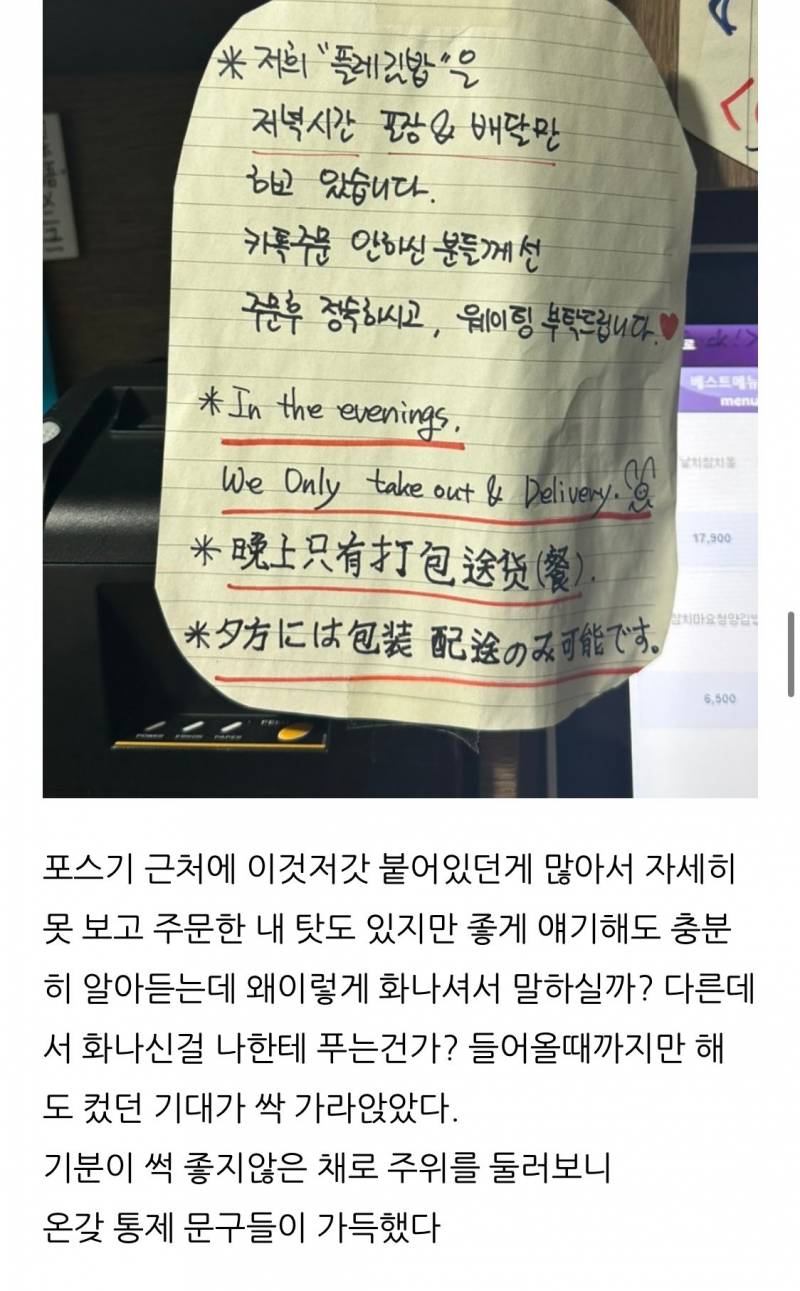 * 저희 "플레김밥"은
저녁시간 포장 & 배달만
하고 있습니다.
카톡주문 안하신 분들께선
주문후 정숙하시고, 웨이팅 부탁드립니다.♥
* In the evenings.
We Only take out & Delivery.
* 晚上只有打包送货(餐).
* 夕方には包装 配送のみ可能です。
베스트메뉴
menu
17,900
6,500
POWER ERROR PAPER
포스기 근처에 이것저갓 붙어있던게 많아서 자세히
못 보고 주문한 내 탓도 있지만 좋게 얘기해도 충분
히 알아듣는데 왜이렇게 화나셔서 말하실까? 다른데
서 화나신걸 나한테 푸는건가? 들어올때까지만 해
도 컸던 기대가 싹 가라앉았다.
기분이 썩 좋지않은 채로 주위를 둘러보니
온갖 통제 문구들이 가득했다